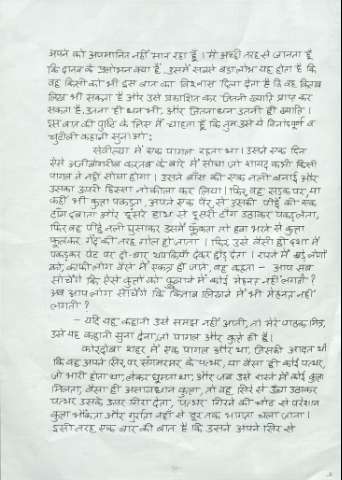 अपने को अपमानित नहीं मान रहा हूँ । मैं अच्छी तरह से जानता हूँ
कि दानव के प्रलोभन क्या हैं । उसमें सबसे बड़ा लोभ यह होता है कि
वह किसी को भी इस बात का विश्वास दिला देता है कि वह किताब
लिख भी सकता है और उसे प्रकाशित कर जितनी ख्याति प्राप्त कर
सकता है, उतना ही धन भी, और जितना धन उतनी ही ख्याति ।
इस बात की पुष्टि के लिए मैं चाहता हूँ कि तुम उसे ये विनोदपूर्ण व
चुटीली कहानी सुनाओ :
सेवील्या में एक पागल रहता था । उसने एक दिन
ऐसे अजीबोगरीब करतब के बारे में सोचा जो शायद कभी किसी
पागल ने नहीं सोचा होगा । उसने बाँस की एक नली बनाई और
उसका ऊपरी हिस्सा नोकीला कर लिया । फिर वह सड़क पर, या
कहीं भी कुत्ता पकड़ता, अपने एक पैर से उसकी पीछे की एक
टाँग दबाता और दूसरे हाथ से दूसरी टाँग उठाकर पकड़ लेता,
फिर वह पीछे नली घुसाकर उसमें फूँकता तो हवा भरने से कुत्ता
फूलकर गेंद की तरह गोल हो जाता । फिर उसे वैसी ही दशा में
पकड़कर पेट पर दो-चार थपकियाँ देकर छोड़ देता । रास्ते में कई लोगों
को, काफी लोग वैसे में एकत्र हो जाते, वह कहता – आप सब
सोचेंगे कि ऐसे कुत्तों को फुलाने में कोई मेहनत नहीं लगती ?
अब आप लोग सोचेंगे कि किताब लिखने में भी मेहनत नहीं
लगती ?
– यदि यह कहानी उसे समझ नहीं आयी, तो मेरे पाठक मित्र,
उसे यह कहानी सुना देना, जो पागल और कुत्ते ही है ।
कोरदोबा शहर में एक पागल और था, जिसकी आदत थी
कि वह अपने सिर पर संगमरमर के पत्थर, या वैसा ही कोई पत्थर,
जो भारी होता था, लेकर घूमता था; और जब उसे रास्ते में कोई कुत्ता
मिलता, वैसा ही असावधान कुत्ता, तो वह सिर से ऊँचा उठाकर
पत्थर उसके ऊपर गिरा देता, पत्थर गिरने की चोट से परेशान
कुत्ता भौंकता और गुर्राता वहीं से दूर तक भागता चला जाता ।
इसी तरह एक बार की बात है कि उसने अपने सिर से